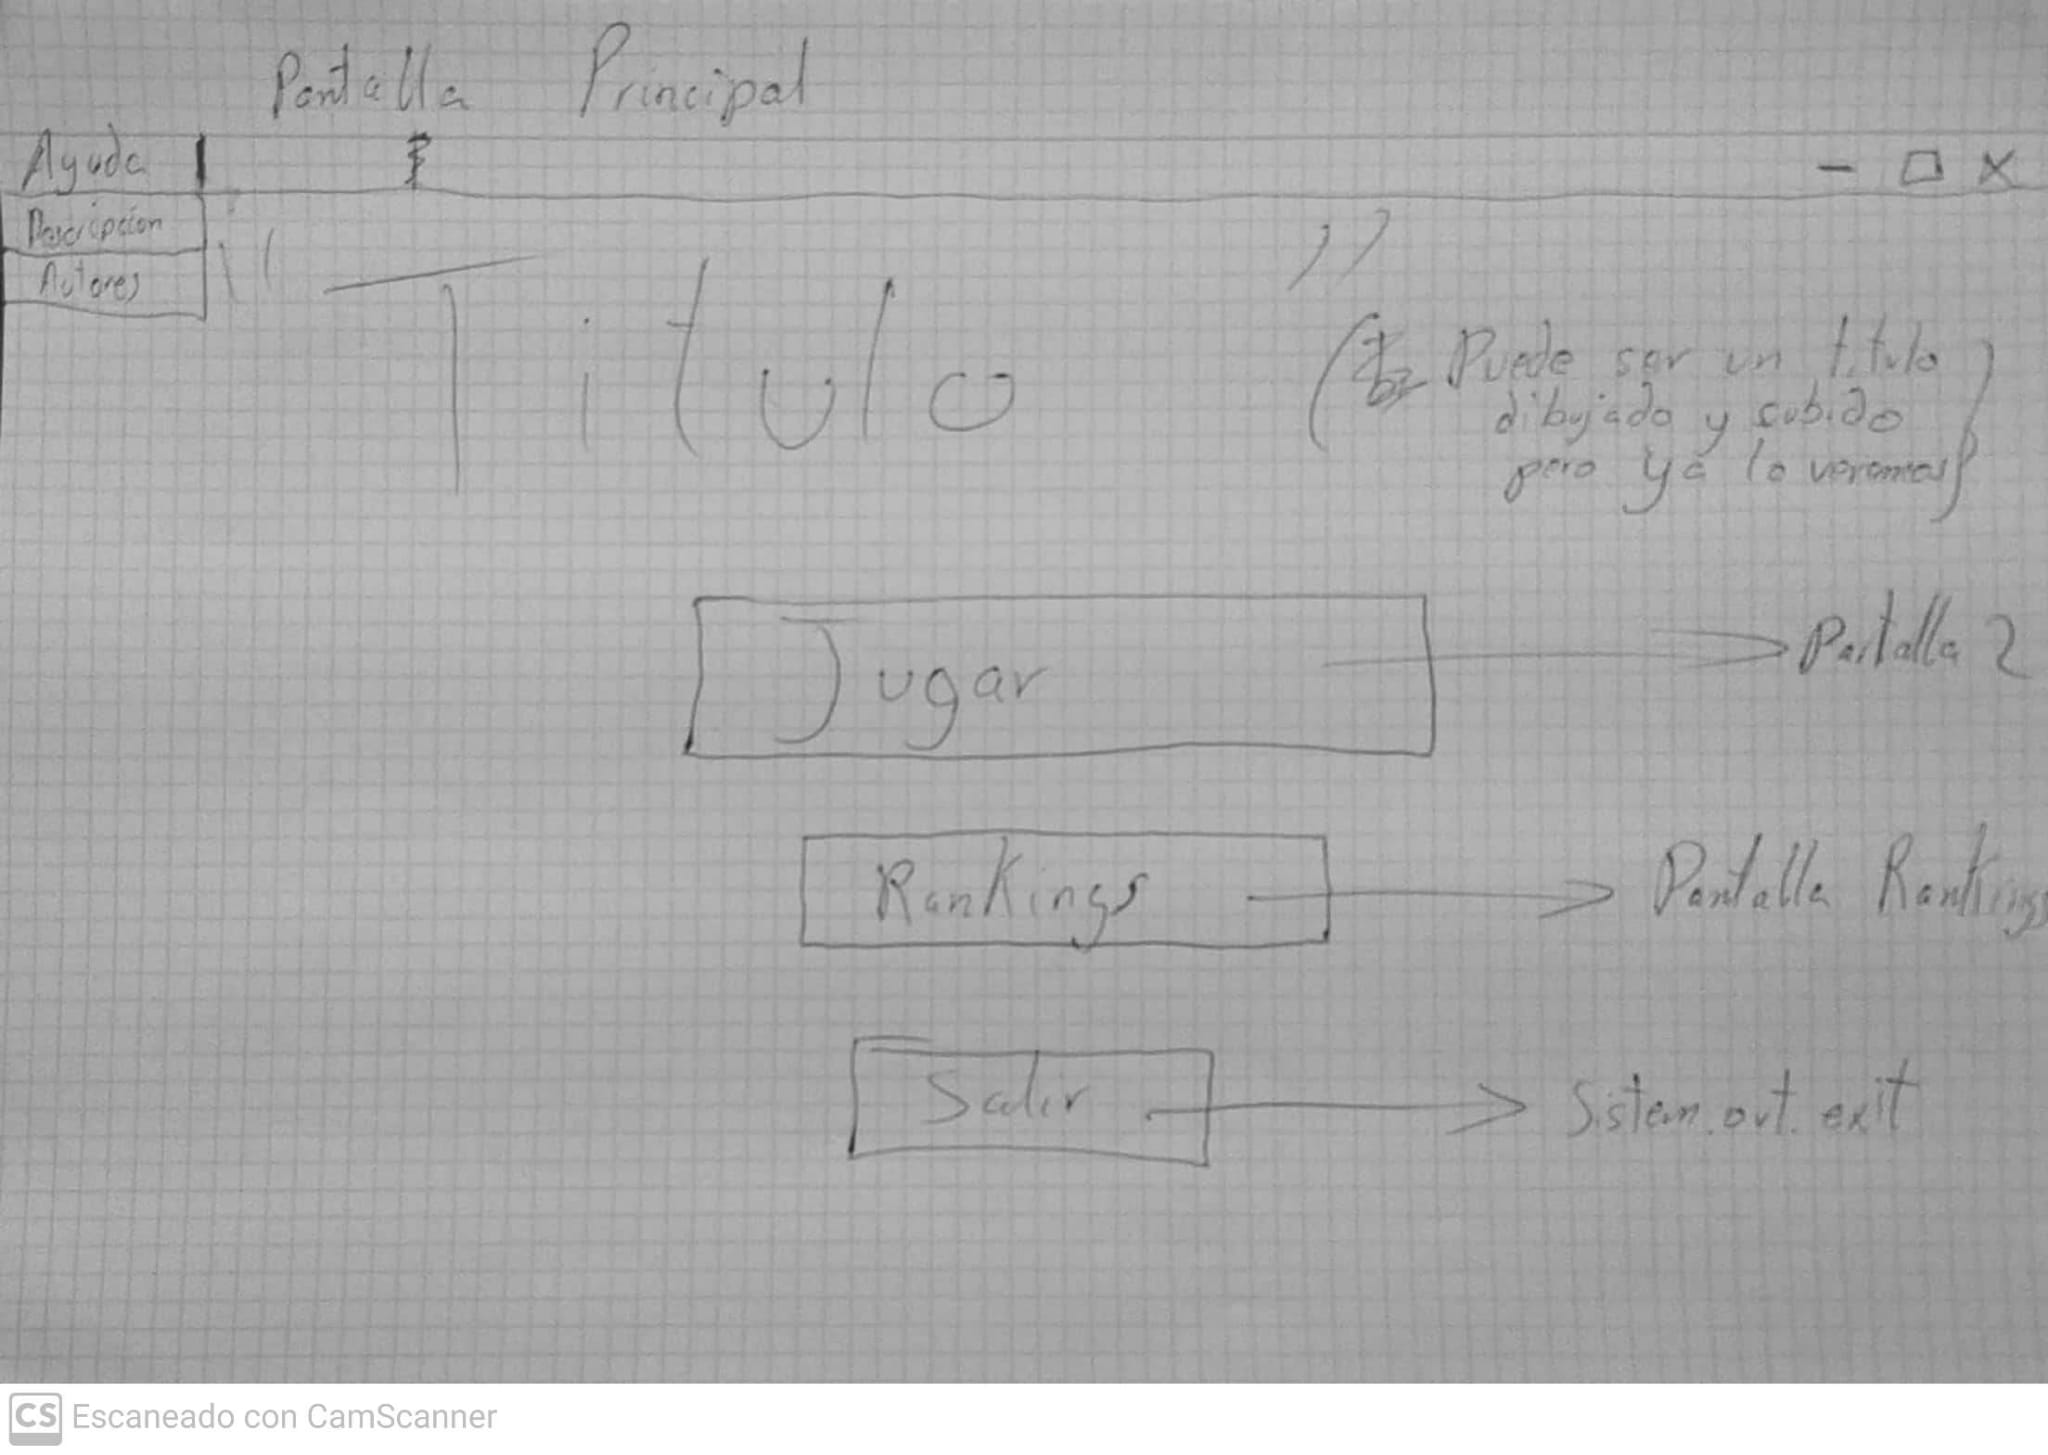 Pantalla Principal
Ayuda
Descripcion
Autores
"Titulo"
(Puede ser un titulo
dibujado y subido
pero ya lo veremos)
Jugar
Pantalla 2
Rankings
Pantalla Rankings
Salir
Sistem.out.exit
CS Escaneado con CamScanner